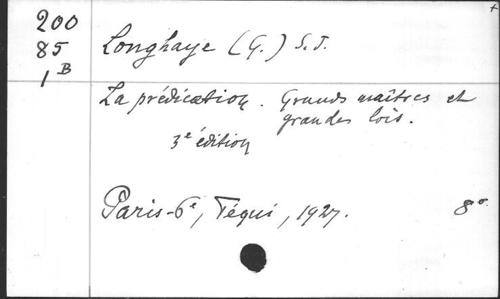 +
200
85
1 B
Longhaye (G.) S.J.
La prédication. Grands maîtres et
grandes lois.
3e édition
Paris-6e, Téqui, 1927. 8°